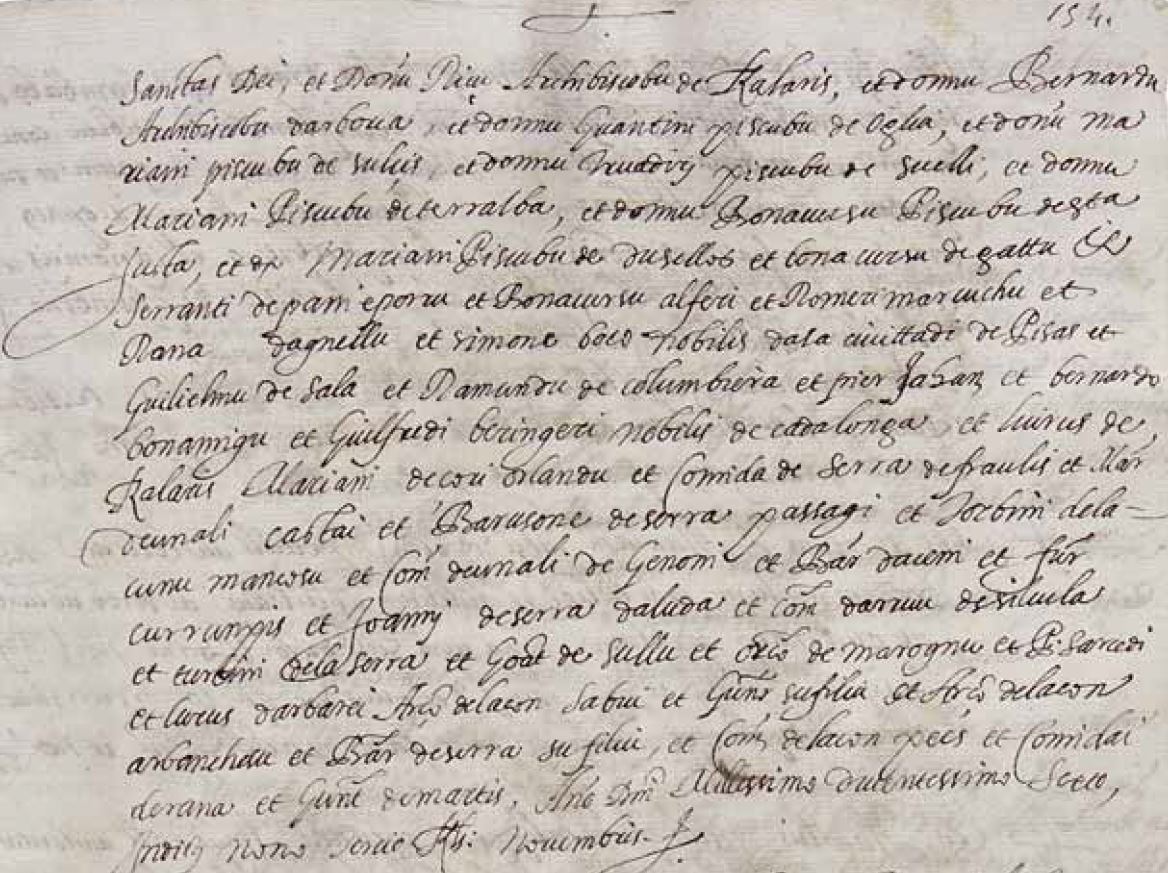 154.
Sanctas Dei, et Donnu Ricu Archibiscobu de Kalaris, et donnu Bernardu
Archibiscobu darborea, et donnu Guantini piscubu de Oglia, et donnu ma
riani piscubu de sulcis, et donnu piscubu de Suelli, et donnu
Mariani Piscubu de terralba, et donnu Bonacursu Piscubu de sta
Justa, et dn Mariani Piscubu de dusellos et bona cursu de gattu et
Serranti de pani eporru et Bonacursu alferi et Romeri marruchu et
Rana dagnellu et simone boco nobilis dasa civittadi de Pisas et
Guilielmu de Sala et Ramundu de columbiera et pier et bernardo
bonamigu et Giulfredi beringeri nobilis de cadalonga et livrus de
Kalaris Mariani de cori orlandu et Comida de Serra de fraulis et Mar
deunali et Barusone de serra passagi et Torbini dela=
cunu mancosu et Com deunali de Genoni et Bar et fur
currumpis et Joanni de serra daluda et Com de silvela
et turbini dela serra et Goat de Sullu et orco de marognu et
et livrus darbarei Arco delacon Sabiu et Gunn su filiu et Arco delacon
arbanchdu et Bar de serra su filiu, et Com delacon peis et Comidai
derana et Gunn demartis. Ano Dni Millessimo ducentessimo
Indict nono Kls: Novembris.